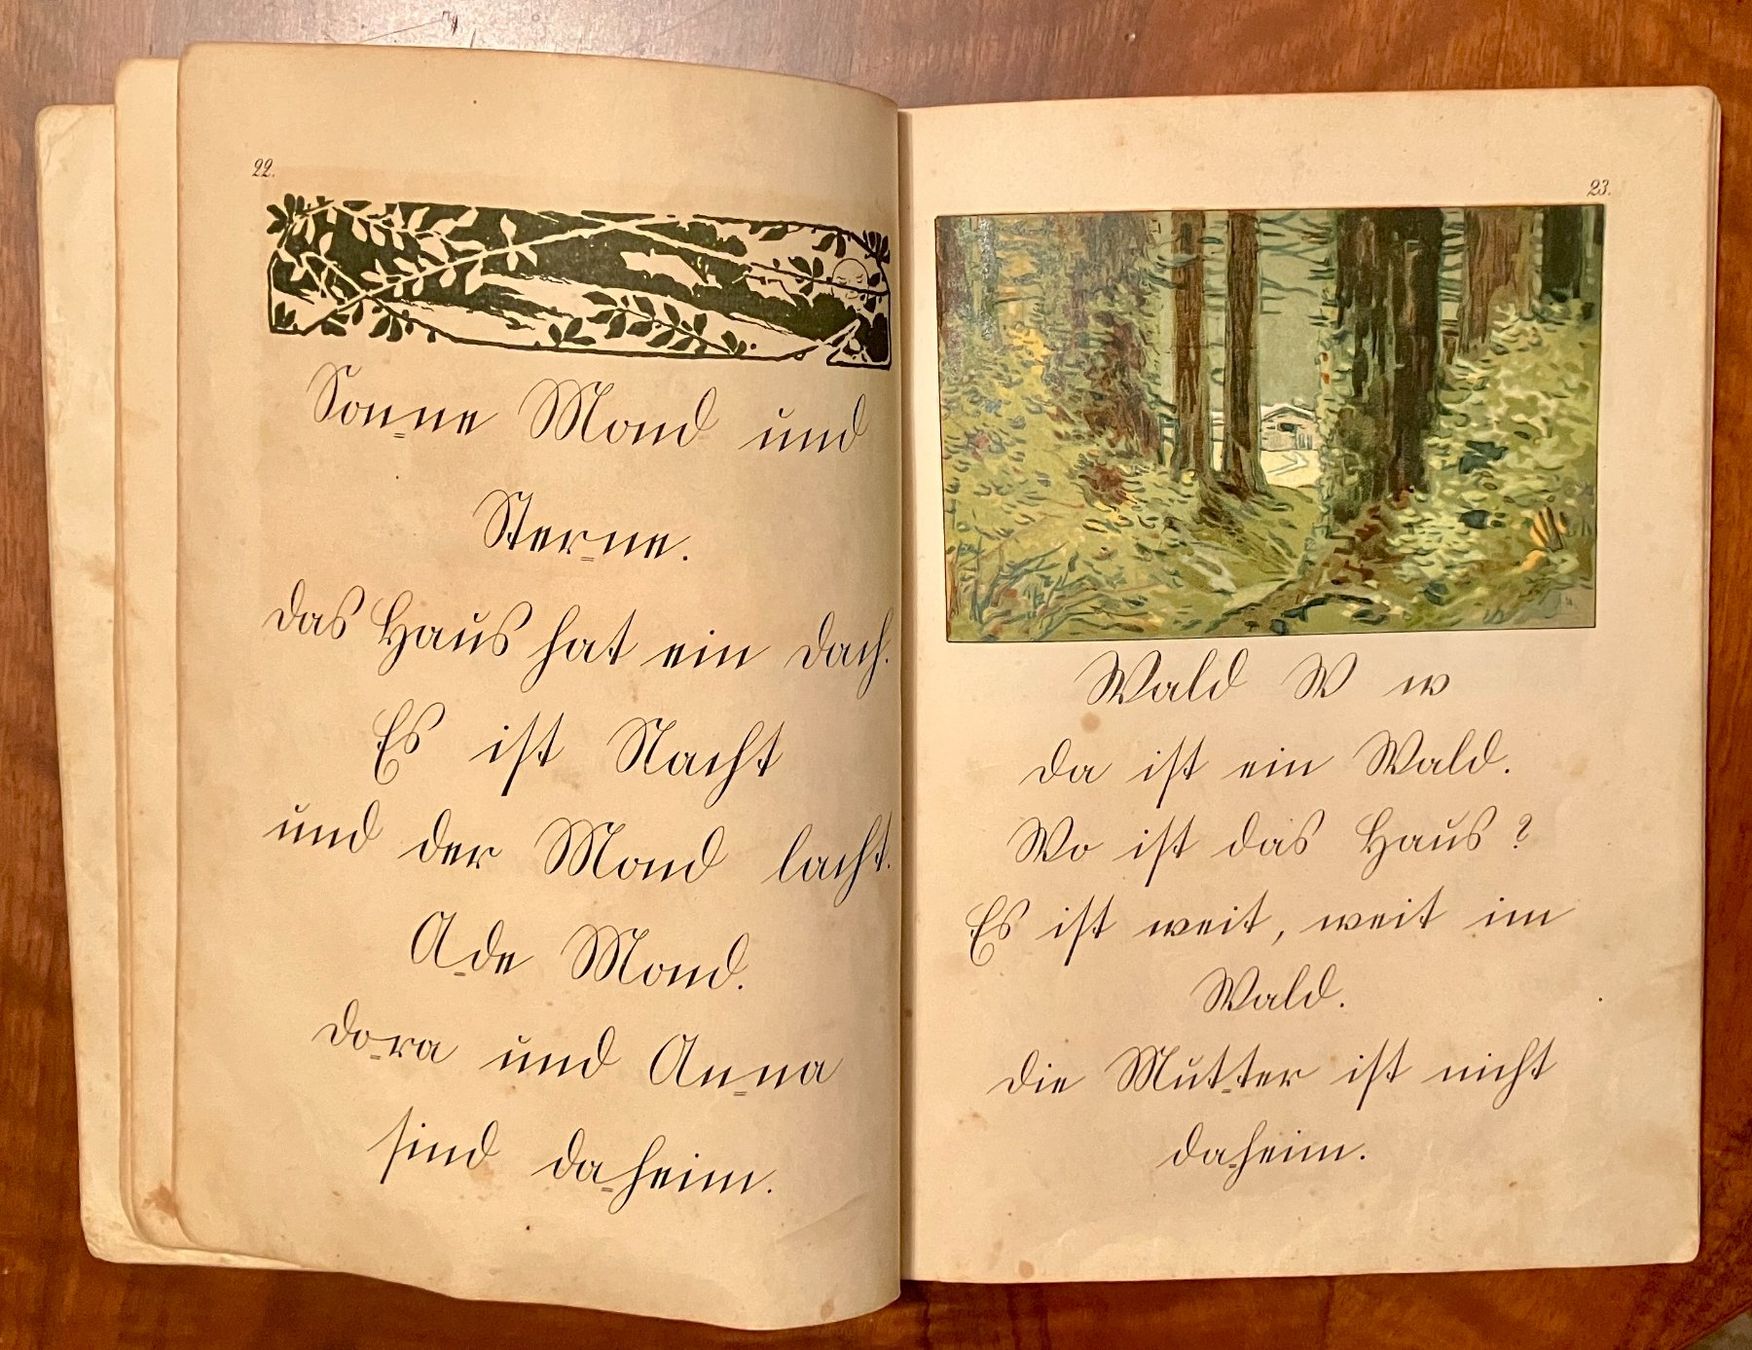 22.
Sonne Mond und
Sterne.
Das Haus hat ein Dach.
Es ist Nacht
und der Mond lacht.
Ade Mond.
Dora und Anna
sind daheim.
23.
Wald W w
Da ist ein Wald.
Wo ist das Haus?
Es ist weit, weit im
Wald.
Die Mutter ist nicht
daheim.